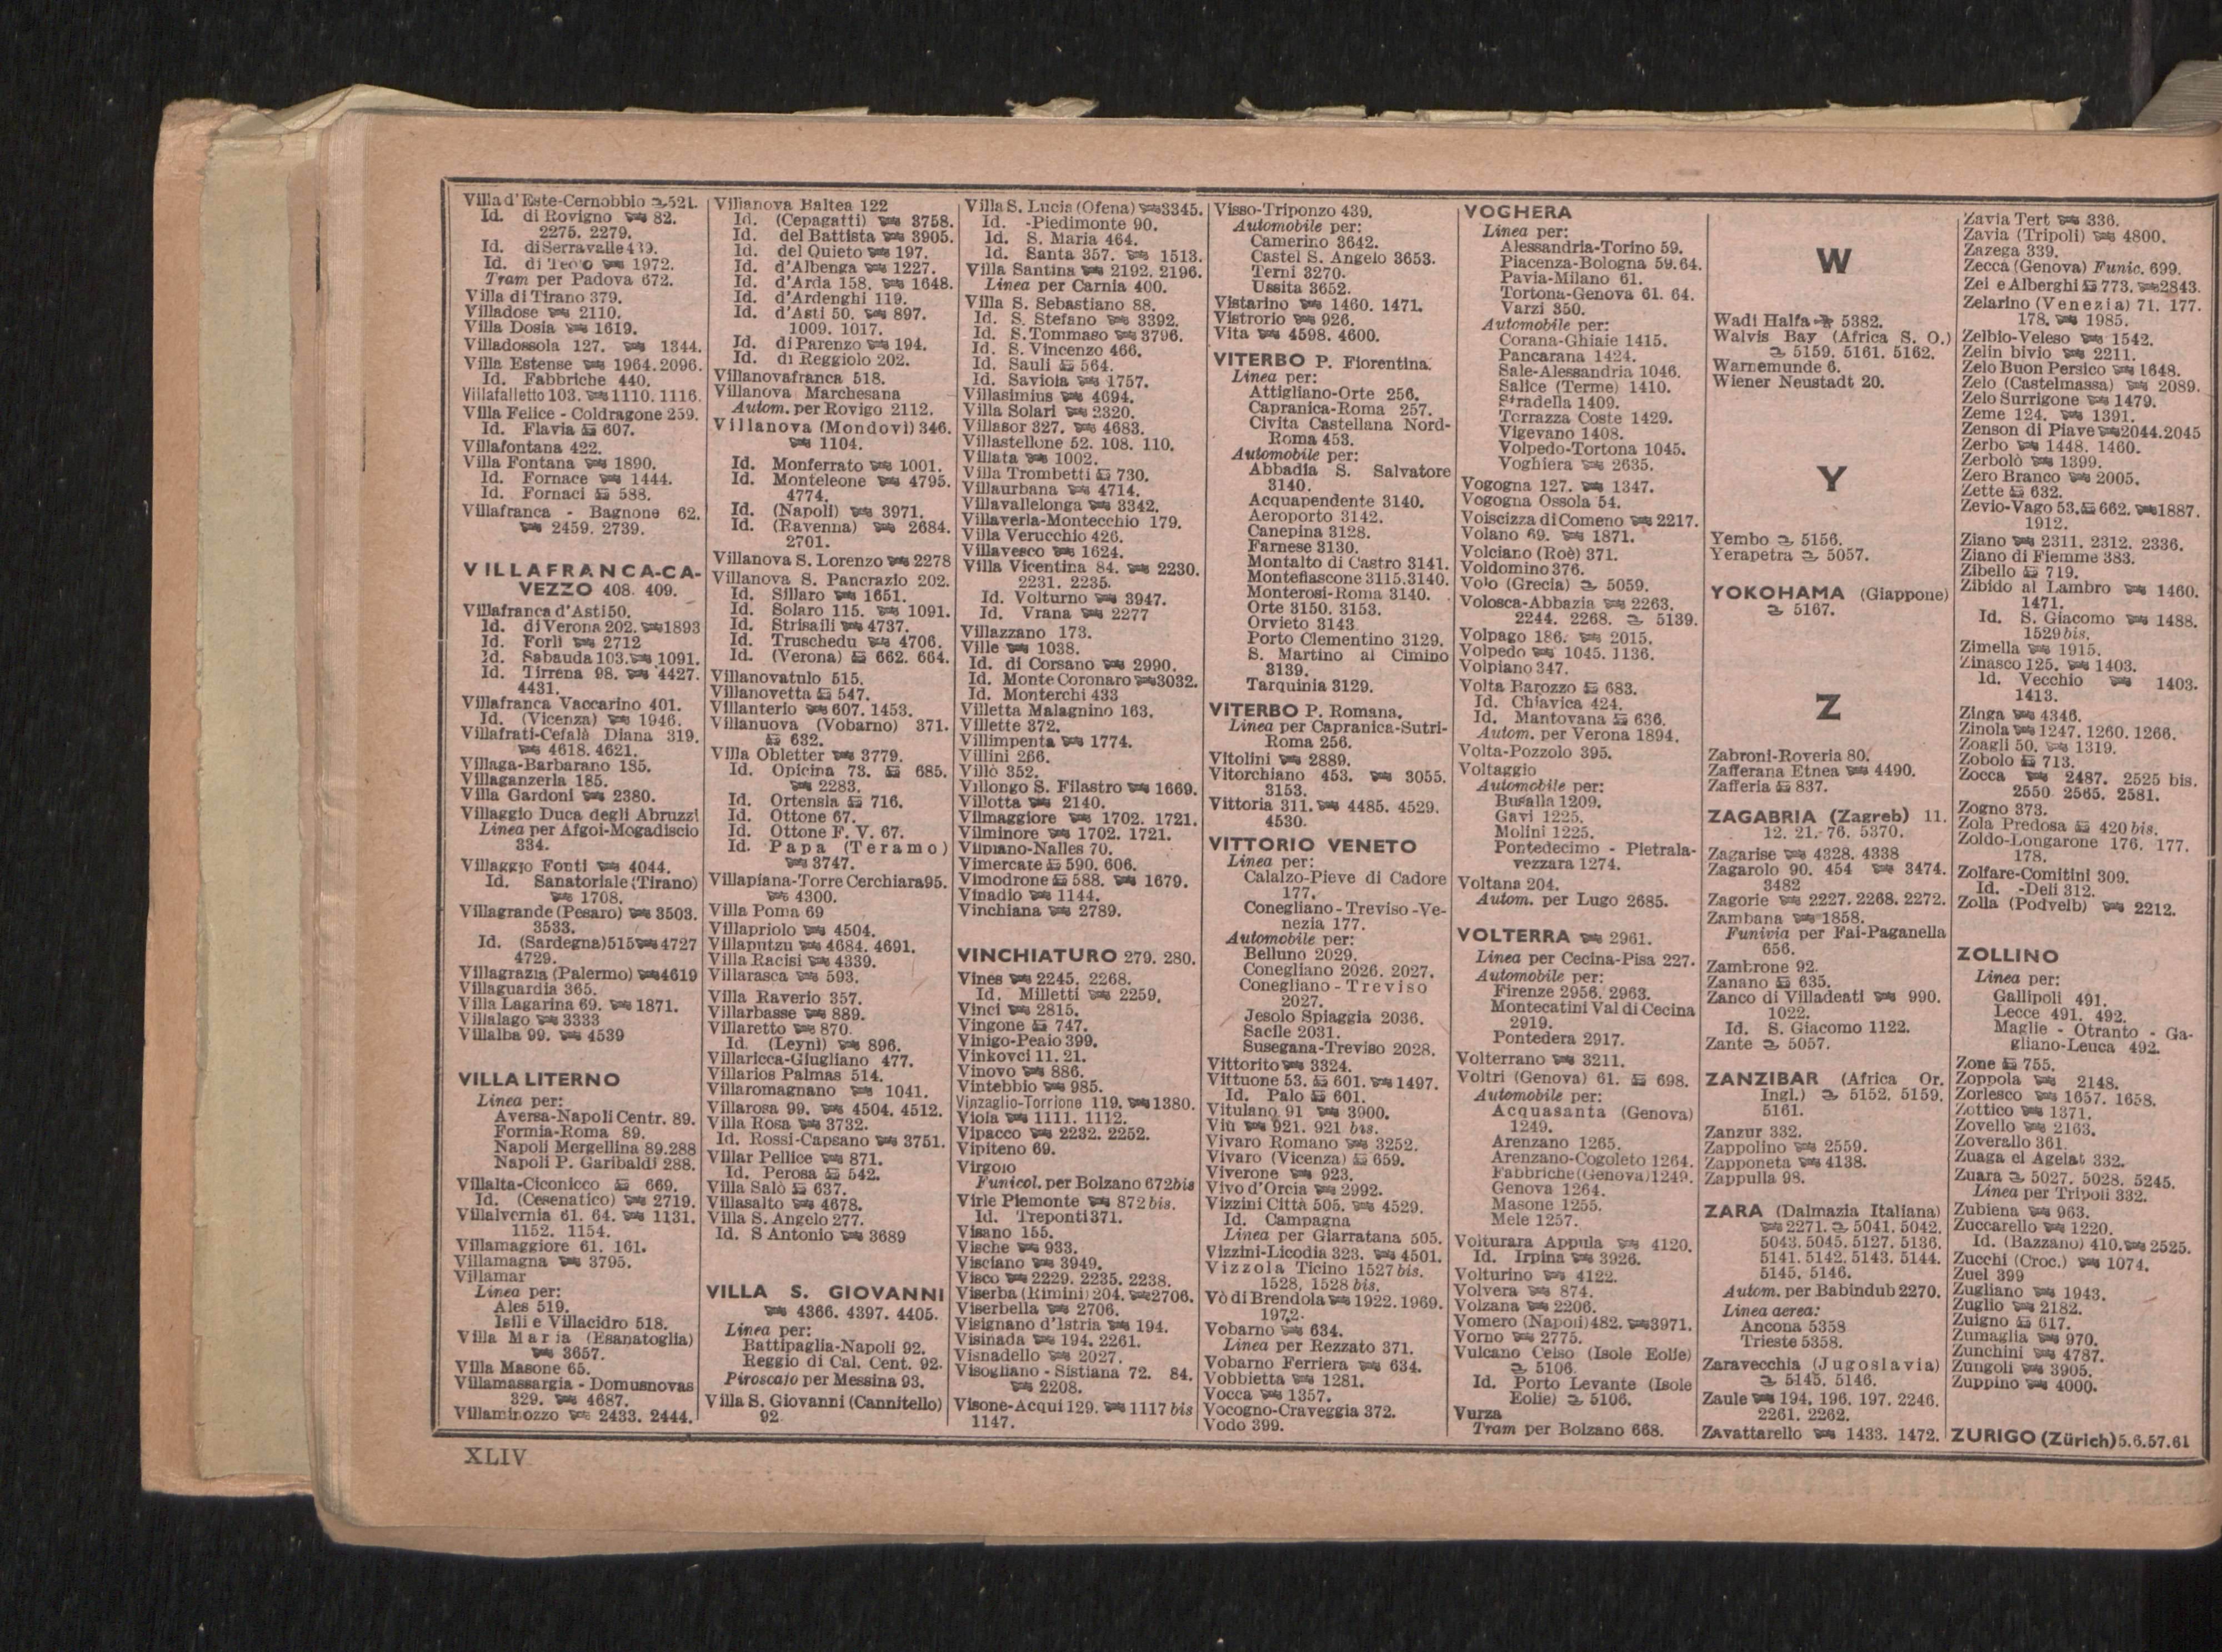 Villa d'Este-Cernobbio 521.
Id. di Rovigno 82.
2275. 2279.
Id. di Serravalle 439.
Id. di Teolo 1972.
Tram per Padova 672.
Villa di Tirano 379.
Villadose 2110.
Villa Dosia 1619.
Villadossola 127. 1344.
Villa Estense 1964. 2096.
Id. Fabbriche 440.
Villafalletto 103. 1110. 1116.
Villa Felice - Coldragone 259.
Id. Flavia 607.
Villafontana 422.
Villa Fontana 1890.
Id. Fornace 1444.
Id. Fornaci 588.
Villafranca - Bagnone 62.
2459. 2739.
VILLAFRANCA-CA-
VEZZO 408. 409.
Villafranca d'Asti 50.
Id. di Verona 202. 1893
Id. Forlì 2712
Id. Sabauda 103. 1091.
Id. Tirrena 98. 4427.
4431.
Villafranca Vaccarino 401.
Id. (Vicenza) 1946.
Villafrati-Cefalà Diana 319.
4618. 4621.
Villaga-Barbarano 185.
Villaganzerla 185.
Villa Gardoni 2380.
Villaggio Duca degli Abruzzi
Linea per Afgoi-Mogadiscio
334.
Villaggio Fonti 4044.
Id. Sanatoriale (Tirano)
1708.
Villagrande (Pesaro) 3503.
3533.
Id. (Sardegna) 515 4727
4729.
Villagrazia (Palermo) 4619
Villaguardia 365.
Villa Lagarina 69. 1871.
Villalago 3333
Villalba 99. 4539
VILLA LITERNO
Linea per:
Aversa-Napoli Centr. 89.
Formia-Roma 89.
Napoli Mergellina 89.288
Napoli P. Garibaldi 288.
Villalta-Ciconicco 669.
Id. (Cesenatico) 2719.
Villalvernia 61. 64. 1131.
1152. 1154.
Villamaggiore 61. 161.
Villamagna 3795.
Villamar
Linea per:
Ales 519.
Isili e Villacidro 518.
Villa Maria (Esanatoglia)
3657.
Villa Masone 65.
Villamassargia - Domusnovas
329. 4687.
Villaminozzo 2433. 2444.
Villanova Baltea 122
Id. (Cepagatti) 3758.
Id. del Battista 3905.
Id. del Quieto 197.
Id. d'Albenga 1227.
Id. d'Arda 158. 1648.
Id. d'Ardenghi 119.
Id. d'Asti 50. 897.
1009. 1017.
Id. di Parenzo 194.
Id. di Reggiolo 202.
Villanovafranca 518.
Villanova Marchesana
Autom. per Rovigo 2112.
Villanova (Mondovì) 346.
1104.
Id. Monferrato 1001.
Id. Monteleone 4795.
4774.
Id. (Napoli) 3971.
Id. (Ravenna) 2684.
2701.
Villanova S. Lorenzo 2278
Villanova S. Pancrazio 202.
Id. Sillaro 1651.
Id. Solaro 115. 1091.
Id. Strisaili 4737.
Id. Truschedu 4706.
Id. (Verona) 662. 664.
Villanovatulo 515.
Villanovetta 547.
Villanterio 607. 1453.
Villanuova (Vobarno) 371.
632.
Villa Obletter 3779.
Id. Opicina 73. 685.
2283.
Id. Ortensia 716.
Id. Ottone 67.
Id. Ottone F. V. 67.
Id. Papa (Teramo)
3747.
Villapiana-Torre Cerchiara 95.
4300.
Villa Poma 69
Villapriolo 4504.
Villaputzu 4684. 4691.
Villa Racisi 4339.
Villarasca 593.
Villa Raverio 357.
Villarbasse 889.
Villaretto 870.
Id. (Leynì) 896.
Villaricca-Giugliano 477.
Villarios Palmas 514.
Villaromagnano 1041.
Villarosa 99. 4504. 4512.
Villa Rosa 3732.
Id. Rossi-Capsano 3751.
Villar Pellice 871.
Id. Perosa 542.
Villa Salò 637.
Villasalto 4678.
Villa S. Angelo 277.
Id. S Antonio 3689
VILLA S. GIOVANNI
4366. 4397. 4405.
Linea per:
Battipaglia-Napoli 92.
Reggio di Cal. Cent. 92.
Piroscafo per Messina 93.
Villa S. Giovanni (Cannitello)
92.
Villa S. Lucia (Ofena) 3345.
Id. -Piedimonte 90.
Id. S. Maria 464.
Id. Santa 357. 1513.
Villa Santina 2192. 2196.
Linea per Carnia 400.
Villa S. Sebastiano 88.
Id. S. Stefano 3392.
Id. S. Tommaso 3796.
Id. S. Vincenzo 466.
Id. Sauli 564.
Id. Saviola 1757.
Villasimius 4694.
Villa Solari 2320.
Villasor 327. 4683.
Villastellone 52. 108. 110.
Villata 1002.
Villa Trombetti 730.
Villaurbana 4714.
Villavallelonga 3342.
Villaverla-Montecchio 179.
Villa Verucchio 426.
Villavesco 1624.
Villa Vicentina 84. 2230.
2231. 2235.
Id. Volturno 3947.
Id. Vrana 2277
Villazzano 173.
Ville 1038.
Id. di Corsano 2990.
Id. Monte Coronaro 3032.
Id. Monterchi 433
Villetta Malagnino 163.
Villette 372.
Villimpenta 1774.
Villini 266.
Villò 352.
Villongo S. Filastro 1669.
Villotta 2140.
Vilmaggiore 1702. 1721.
Vilminore 1702. 1721.
Vilpiano-Nalles 70.
Vimercate 590. 606.
Vimodrone 588. 1679.
Vinadio 1144.
Vinchiana 2789.
VINCHIATURO 279. 280.
Vines 2245. 2268.
Id. Milletti 2259.
Vinci 2815.
Vingone 747.
Vinigo-Peaio 399.
Vinkovci 11. 21.
Vinovo 886.
Vintebbio 985.
Vinzaglio-Torrione 119. 1380.
Viola 1111. 1112.
Vipacco 2232. 2252.
Vipiteno 69.
Virgolo
Funicol. per Bolzano 672bis
Virle Piemonte 872 bis.
Id. Treponti 371.
Visano 155.
Vische 933.
Visciano 3949.
Visco 2229. 2235. 2238.
Viserba (Rimini) 204. 2706.
Viserbella 2706.
Visignano d'Istria 194.
Visinada 194. 2261.
Visnadello 2027.
Visogliano - Sistiana 72. 84.
2208.
Visone-Acqui 129. 1117 bis
1147.
Visso-Triponzo 439.
Automobile per:
Camerino 3642.
Castel S. Angelo 3653.
Terni 3270.
Ussita 3652.
Vistarino 1460. 1471.
Vistrorio 926.
Vita 4598. 4600.
VITERBO P. Fiorentina.
Linea per:
Attigliano-Orte 256.
Capranica-Roma 257.
Civita Castellana Nord-
Roma 453.
Automobile per:
Abbadia S. Salvatore
3140.
Acquapendente 3140.
Aeroporto 3142.
Canepina 3128.
Farnese 3130.
Montalto di Castro 3141.
Montefiascone 3115.3140.
Monterosi-Roma 3140.
Orte 3150. 3153.
Orvieto 3143.
Porto Clementino 3129.
S. Martino al Cimino
3139.
Tarquinia 3129.
VITERBO P. Romana.
Linea per Capranica-Sutri-
Roma 256.
Vitolini 2889.
Vitorchiano 453. 3055.
3153.
Vittoria 311. 4485. 4529.
4530.
VITTORIO VENETO
Linea per:
Calalzo-Pieve di Cadore
177.
Conegliano - Treviso - Ve-
nezia 177.
Automobile per:
Belluno 2029.
Conegliano 2026. 2027.
Conegliano - Treviso
2027.
Jesolo Spiaggia 2036.
Sacile 2031.
Susegana-Treviso 2028.
Vittorito 3324.
Vittuone 53. 601. 1497.
Id. Palo 601.
Vitulano 91 3900.
Viù 921. 921 bis.
Vivaro Romano 3252.
Vivaro (Vicenza) 659.
Viverone 923.
Vivo d'Orcia 2992.
Vizzini Città 505. 4529.
Id. Campagna
Linea per Giarratana 505.
Vizzini-Licodia 323. 4501.
Vizzola Ticino 1527 bis.
1528. 1528 bis.
Vò di Brendola 1922. 1969.
1972.
Vobarno 634.
Linea per Rezzato 371.
Vobarno Ferriera 634.
Vobbietta 1281.
Vocca 1357.
Vocogno-Craveggia 372.
Vodo 399.
VOGHERA
Linea per:
Alessandria-Torino 59.
Piacenza-Bologna 59.64.
Pavia-Milano 61.
Tortona-Genova 61. 64.
Varzi 350.
Automobile per:
Corana-Ghiaie 1415.
Pancarana 1424.
Sale-Alessandria 1046.
Salice (Terme) 1410.
Stradella 1409.
Torrazza Coste 1429.
Vigevano 1408.
Volpedo-Tortona 1045.
Voghiera 2635.
Vogogna 127. 1347.
Vogogna Ossola 54.
Voiscizza di Comeno 2217.
Volano 69. 1871.
Volciano (Roè) 371.
Voldomino 376.
Volo (Grecia) 5059.
Volosca-Abbazia 2263.
2244. 2268. 5139.
Volpago 186. 2015.
Volpedo 1045. 1136.
Volpiano 347.
Volta Barozzo 683.
Id. Chiavica 424.
Id. Mantovana 636.
Autom. per Verona 1894.
Volta-Pozzolo 395.
Voltaggio
Automobile per:
Busalla 1209.
Gavi 1225.
Molini 1225.
Pontedecimo - Pietrala-
vezzara 1274.
Voltana 204.
Autom. per Lugo 2685.
VOLTERRA 2961.
Linea per Cecina-Pisa 227.
Automobile per:
Firenze 2956. 2963.
Montecatini Val di Cecina
2919.
Pontedera 2917.
Volterrano 3211.
Voltri (Genova) 61. 698.
Automobile per:
Acquasanta (Genova)
1249.
Arenzano 1265.
Arenzano-Cogoleto 1264.
Fabbriche (Genova) 1249.
Genova 1264.
Masone 1255.
Mele 1257.
Volturara Appula 4120.
Id. Irpina 3926.
Volturino 4122.
Volvera 874.
Volzana 2206.
Vomero (Napoli) 482. 3971.
Vorno 2775.
Vulcano Celso (Isole Eolie)
5106.
Id. Porto Levante (Isole
Eolie) 5106.
Vurza
Tram per Bolzano 668.
W
Wadi Halfa 5382.
Walvis Bay (Africa S. O.)
5159. 5161. 5162.
Warnemunde 6.
Wiener Neustadt 20.
Y
Yembo 5156.
Yerapetra 5057.
YOKOHAMA (Giappone)
5167.
Z
Zabroni-Roveria 80.
Zafferana Etnea 4490.
Zafferia 837.
ZAGABRIA (Zagreb) 11.
12. 21. 76. 5370.
Zagarise 4328. 4338
Zagarolo 90. 454 3474.
3482
Zagorie 2227. 2268. 2272.
Zambana 1858.
Funivia per Fai-Paganella
656.
Zambrone 92.
Zanano 635.
Zanco di Villadeati 990.
1022.
Id. S. Giacomo 1122.
Zante 5057.
ZANZIBAR (Africa Or.
Ingl.) 5152. 5159.
5161.
Zanzur 332.
Zappolino 2559.
Zapponeta 4138.
Zappulla 98.
ZARA (Dalmazia Italiana)
2271. 5041. 5042.
5043. 5045. 5127. 5136.
5141. 5142. 5143. 5144.
5145. 5146.
Autom. per Babindub 2270.
Linea aerea:
Ancona 5358
Trieste 5358.
Zaravecchia (Jugoslavia)
5145. 5146.
Zaule 194. 196. 197. 2246.
2261. 2262.
Zavattarello 1433. 1472.
Zavia Tert 336.
Zavia (Tripoli) 4800.
Zazega 339.
Zecca (Genova) Funic. 699.
Zei e Alberghi 773. 2843.
Zelarino (Venezia) 71. 177.
178. 1985.
Zelbio-Veleso 1542.
Zelin bivio 2211.
Zelo Buon Persico 1648.
Zelo (Castelmassa) 2089.
Zelo Surrigone 1479.
Zeme 124. 1391.
Zenson di Piave 2044.2045
Zerbo 1448. 1460.
Zerbolò 1399.
Zero Branco 2005.
Zette 632.
Zevio-Vago 53. 662. 1887.
1912.
Ziano 2311. 2312. 2336.
Ziano di Fiemme 383.
Zibello 719.
Zibido al Lambro 1460.
1471.
Id. S. Giacomo 1488.
1529 bis.
Zimella 1915.
Zinasco 125. 1403.
Id. Vecchio 1403.
1413.
Zinga 4346.
Zinola 1247. 1260. 1266.
Zoagli 50. 1319.
Zobolo 713.
Zocca 2487. 2525 bis.
2550. 2565. 2581.
Zogno 373.
Zola Predosa 420 bis.
Zoldo-Longarone 176. 177.
178.
Zolfare-Comitini 309.
Id. -Deli 312.
Zolla (Podvelb) 2212.
ZOLLINO
Linea per:
Gallipoli 491.
Lecce 491. 492.
Maglie - Otranto - Ga-
gliano-Leuca 492.
Zone 755.
Zoppola 2148.
Zorlesco 1657. 1658.
Zottico 1371.
Zovello 2163.
Zoverallo 361.
Zuaga el Agelat 332.
Zuara 5027. 5028. 5245.
Linea per Tripoli 332.
Zubiena 963.
Zuccarello 1220.
Id. (Bazzano) 410. 2525.
Zucchi (Croc.) 1074.
Zuel 399
Zugliano 1943.
Zuglio 2182.
Zuigno 617.
Zumaglia 970.
Zunchini 4787.
Zungoli 3905.
Zuppino 4000.
ZURIGO (Zürich) 5.6.57.61
XLIV